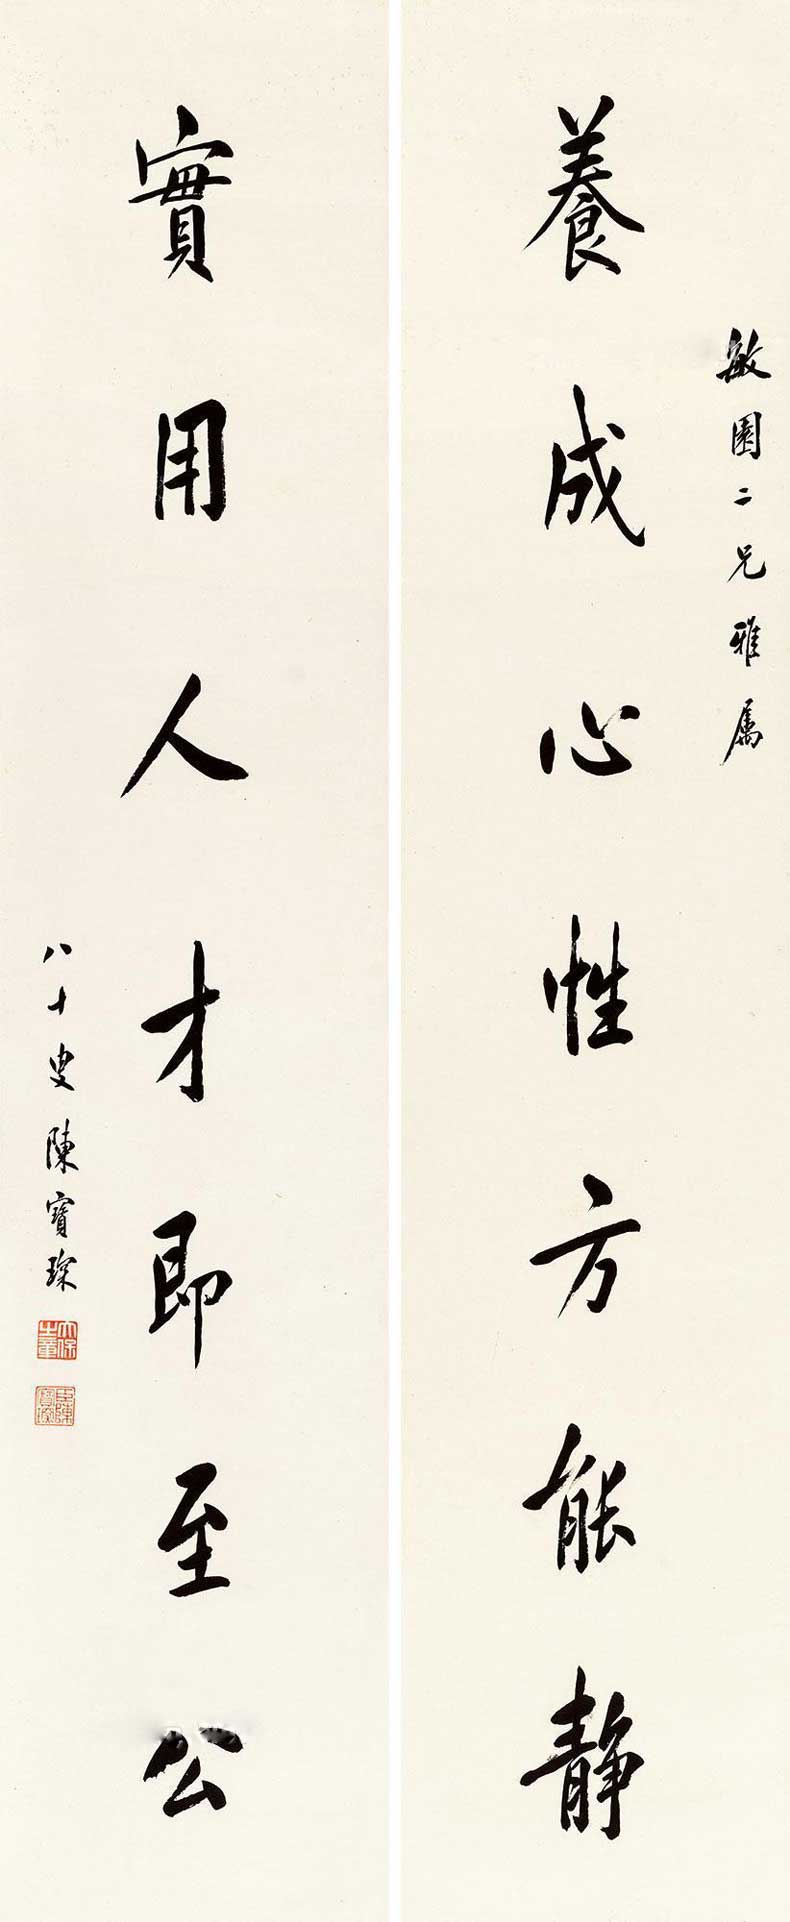 敏園二兄雅屬
養成心性方能靜
實用人才即至公
八十叟陳寶琛